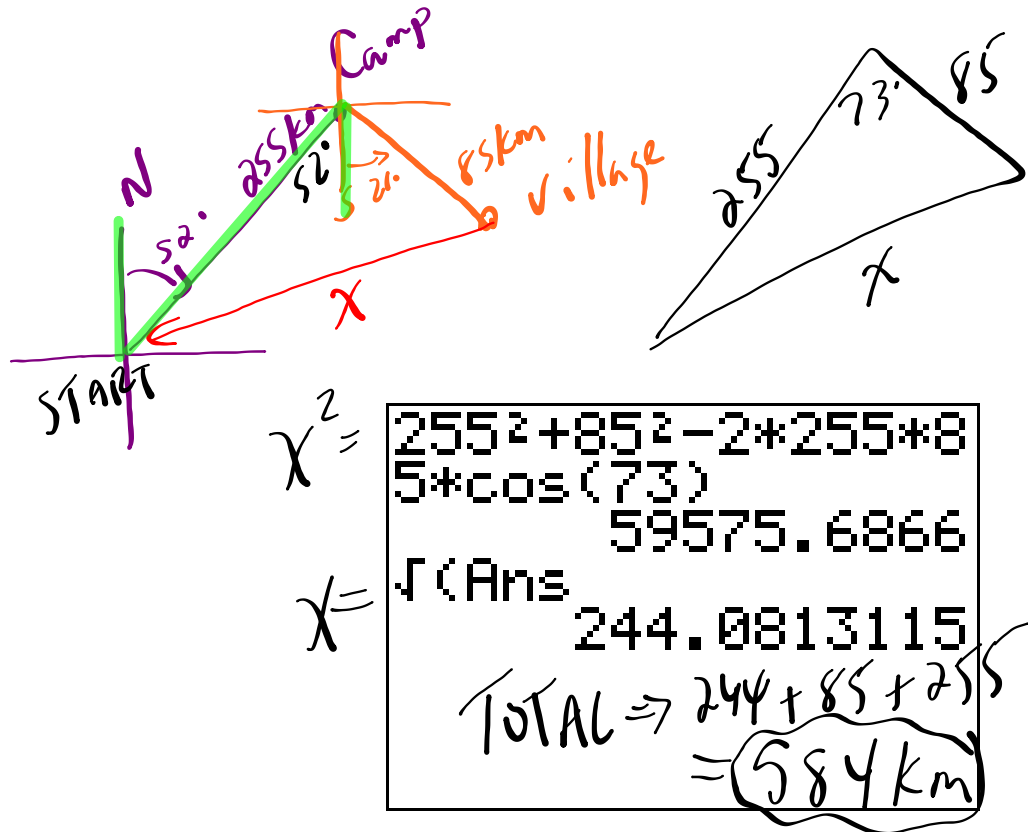 Camp
N
255km
52°
52°
S
21°
85km
Village
x
START
73°
85
255
x
x² =
255²+85²-2*255*8
5*cos(73)
59575.6866
x =
√(Ans
244.0813115
TOTAL ⇒ 244 + 85 + 255
= 584 km